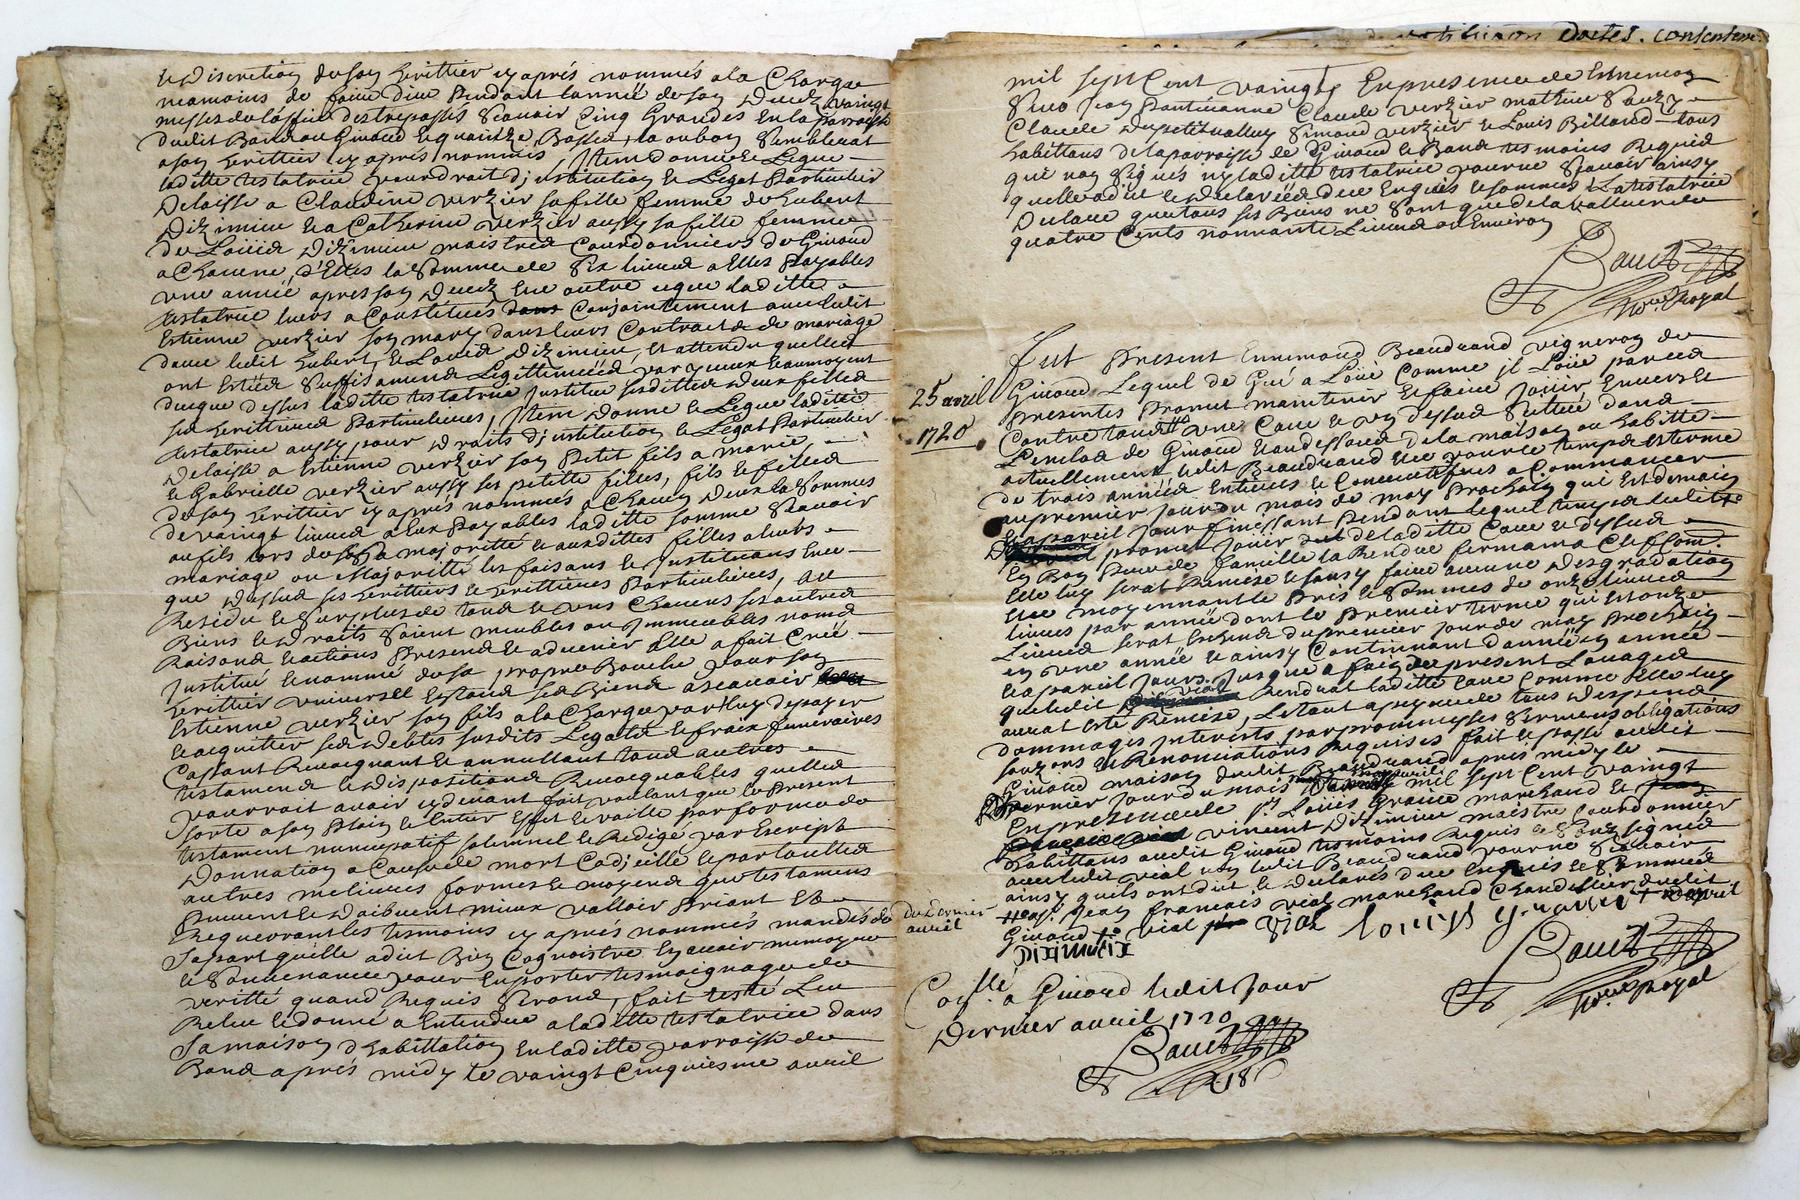 et discretion de son herittier cy aprés nommés a la Charge
neamoins de faire dire Pendant lannée de son decez vaingt
messes de loffice des trepassés scavoir Cinq Grandes en la parroisse
dudit Bans ou Givord et quaintze Basses, la ou bon semblerat
a son herittier cy aprés nommés, Item donne et Legue
laditte testatrice pour droit dinstitution et Legat Particulier
Delaisse a Claudine verzier sa fille femme de hubert
Dizimieu et a Catherine verzier aussy sa fille femme
de Loüis Dizimieu maistres Courdonniers de Givord
a Chacune d'Elles la somme de six livres a Elles Payables
une année apres son decez Et outre ce que laditte
testatrice leurs a Constitués Conjointement avec ledit
Estienne verzier son mary dans leurs Contracts de mariage
davec ledit hubert, et Loüis Dizimieu, Et attendu quelles
ont Estées suffisament Legittimées par ceux et au moyent
du que dessus laditte testatrice Institue sesdittes deux filles
ses herittieres Particulieres, Item donne et Legue laditte
testatrice aussy pour droits dinstitution et Legat Particulier
Delaisse a Estienne verzier son Petit fils a marie,
et Gabrielle verzier aussy ses petitte filles, fils et filles
de son herittier cy aprés nommés a Chacun deux la sommes
de vaingt livres a Eux Payables laditte somme scavoir
au fils lors de sa majoritté et ausdittes filles a leurs
mariage ou Majoritté les faisans et Instituans Ence
que dessus ses herittiers et herittieres Particulieres, Au
Residu et surplus de tous et uns Chacuns ses autres
Biens et droits soient meubles ou Immeubles noms
Raisons et actions Presens et advenir Elle a fait Créé
Institué et nommé de sa propre Bouche pour son
herittier universell En tous ses Biens a scavoir
Estienne verzier son fils a la Charge par luy de payer
et acquitter ses debtes susdits Legats et fraix funeraires
Cassant Revocquant et annullant tous autres
testamens et dispositions Revocquables quelle
pourrait avoir cy devant fait voulant que le Present
sorte a son Plain et Entier Effet et vaille par forme de
testament nuncupatif solemnel et Redigé par Escript
Donnation a Cause de mort Codicille et par toutes
autres meilieures formes et moyens que testamens
Peuvent et doibvent mieux valloir Priant Et
Requerrant les tesmoins cy aprés nommés mandés de
sa part quelle a dit Bien Cognoistre En avoir memoyre
et souvenance pour En porter tesmoignage de
veritté quand Requis seront, fait testé Leu
Releu et donné a Entendre a laditte testatrice dans
sa maison d'habittation En laditte parroisse de
Bans aprés midy le vaingt Cinquiesme avril
mil sept Cent vaingt, En presence de
Claude verzier mathieu
Claude Dupetitvalluy Simond verzier et Louis Billiard tous
habittans de la parroisse de Givord et Bans tesmoins Requis
qui non signés ny laditte testatrice pour ne scavoir ainsy
quelle a dit et declarée de ce Enquis et sommés, La testatrice
Declare que tous ses Biens ne sont que de la valleur de
quatre Cents nonnante Livres ou Environ
No.re Royal
25 avril
1720
Fut Present Ennemond Beaudrand vigneron de
Givord Lequel de Gré a Loüe Comme jl Loüe par ces
presentes Promet maintenir et faire Joüir Envers et
Contre tous une Cave et un dessus scittué dans
Lenclos de Givord Et au dessous de la maison ou habitte
actuellement ledit Beaudrand Et ce pour le temps et terme
de trois années Entieres et Consecutives a Commancer
au premier jour du mois de may Prochain qui Est demain
Et a pareil jour finissant Pendant Lequel temps ledit
promet Joüir de laditte Cave et dessus
En Bon Pere de famille la Rendre fermant a Clef Comme
Elle luy serat Remise et sans y faire aucune desgradation
Et ce moyennant le Pris et sommes de onze Livres
Livres par année dont le Premier terme qui Est onze
Livres serat Escheus du premier jour de may Prochain
en une année et ainsy Continuant d'année en année
Et a pareil jours, jusque a fin du present Louage
que ledit Rendrat laditte Cave Comme Elle luy
aurat Esté Remise, Le tout a peyne de tous despens
dommages Interests par promesses serment obligations
soumissions et Renonciations Requises fait et passé audit
Givord maison dudit Beaudrand aprés midy le
Dernier jour du mois mil sept Cent vaingt
En presence de Sr. Loüis marchand et
vincent Dizimieu maistre Courdonnier
habittans audit Givord tesmoins Requis et soussignés
avec ledit vial non ledit Beaudrand pour ne scavoir
ainsy quils ont dit et declarés de ce Enquis et sommés
Jean francois vial marchand Chandellier dudit
Givord vial
du dernier
avril
Louiys
DIZIMIEIX
No.re Royal
Con.llé a Givord ledit jour
Dernier avril 1720